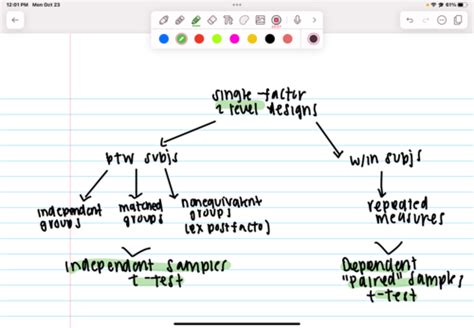 12:01 PM Mon Oct 23
61%
single-factor
2 level designs
btw subjs
w/in subjs
independent
groups
matched
groups
nonequivalent
groups
(ex post facto)
repeated
measures
independent samples
t-test
Dependent
"paired" samples
t-test